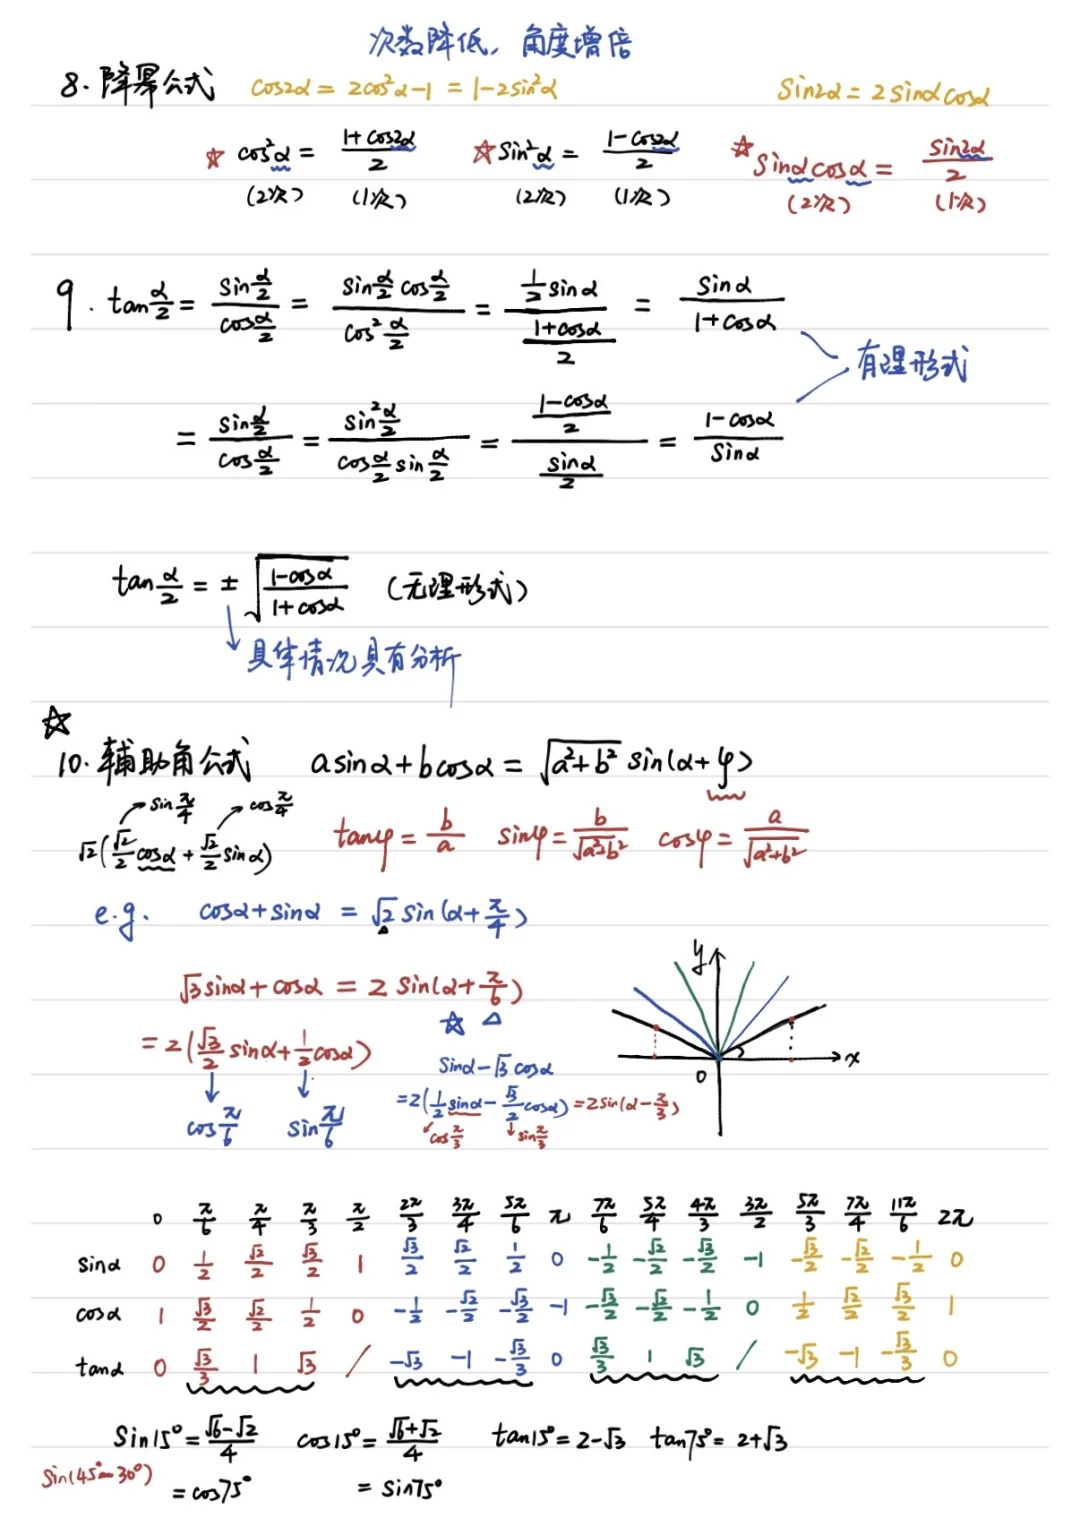 次数降低，角度增倍
8. 降幂公式 cos2α = 2cos²α-1 = 1-2sin²α sin2α = 2sinαcosα
☆ cos²α = (1+cos2α)/2 ☆ sin²α = (1-cos2α)/2 ☆ sinαcosα = sin2α/2
(2次) (1次) (2次) (1次) (2次) (1次)
9. tan α/2 = (sin α/2)/(cos α/2) = (sin α/2 cos α/2)/(cos² α/2) = (1/2 sinα)/((1+cosα)/2) = sinα/(1+cosα)
有理形式
= (sin α/2)/(cos α/2) = (sin² α/2)/(cos α/2 sin α/2) = ((1-cosα)/2)/(sinα/2) = (1-cosα)/sinα
tan α/2 = ± √((1-cosα)/(1+cosα)) (无理形式)
具体情况具有分析
☆
10. 辅助角公式 asinα+bcosα = √(a²+b²) sin(α+φ)
sin π/4 cos π/4
√2(√2/2 cosα + √2/2 sinα) tanφ = b/a sinφ = b/√(a²+b²) cosφ = a/√(a²+b²)
e.g. cosα+sinα = √2 sin(α+π/4)
√3sinα+cosα = 2 sin(α+π/6)
= 2(√3/2 sinα+1/2 cosα)
cos π/6 sin π/6
☆ △
sinα-√3cosα
=2(1/2 sinα-√3/2 cosα)=2sin(α-π/3)
cos π/3 sin π/3
y
x
0
0 π/6 π/4 π/3 π/2 2π/3 3π/4 5π/6 π 7π/6 5π/4 4π/3 3π/2 5π/3 7π/4 11π/6 2π
sinα 0 1/2 √2/2 √3/2 1 √3/2 √2/2 1/2 0 -1/2 -√2/2 -√3/2 -1 -√3/2 -√2/2 -1/2 0
cosα 1 √3/2 √2/2 1/2 0 -1/2 -√2/2 -√3/2 -1 -√3/2 -√2/2 -1/2 0 1/2 √2/2 √3/2 1
tanα 0 √3/3 1 √3 / -√3 -1 -√3/3 0 √3/3 1 √3 / -√3 -1 -√3/3 0
sin15°= (√6-√2)/4 cos15°= (√6+√2)/4 tan15°= 2-√3 tan75°= 2+√3
sin(45°-30°)
= cos75° = sin75°